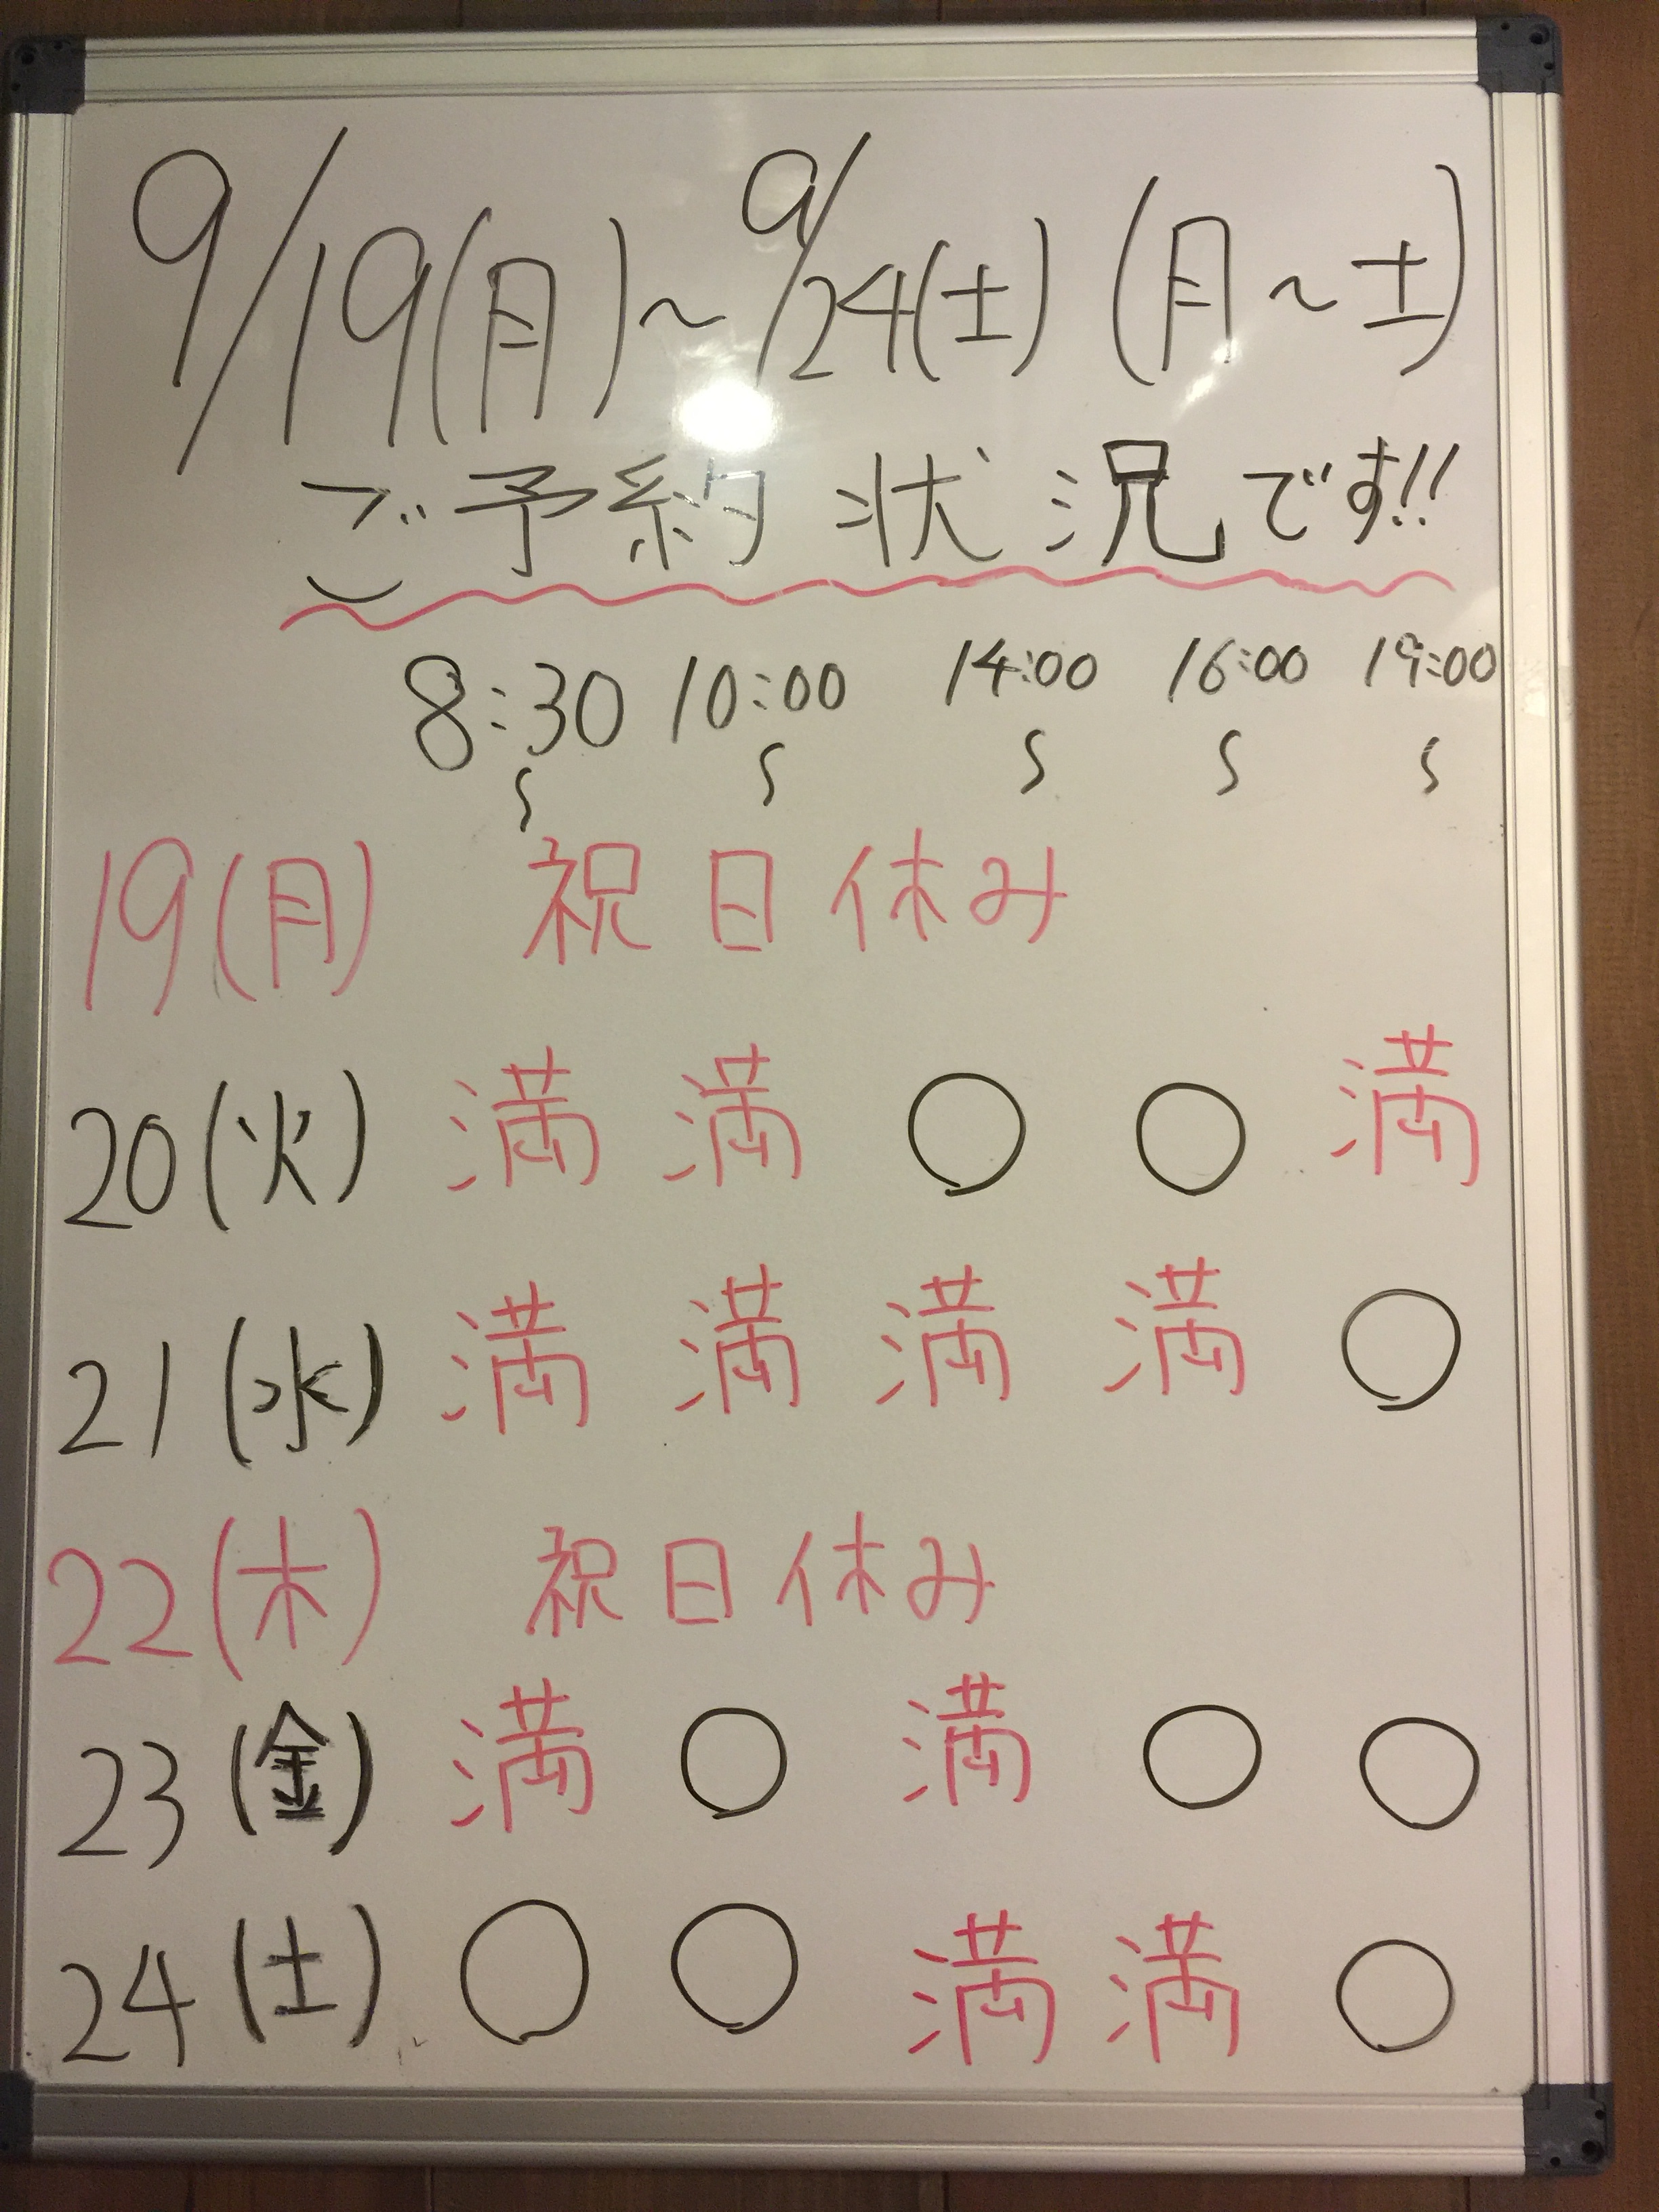 9/19(月)～9/24(土)(月～土)
ご予約状況です!!
8:30～ 10:00～ 14:00～ 16:00～ 19:00～
19(月) 祝日休み
20(火) 満 満 ○ ○ 満
21(水) 満 満 満 満 ○
22(木) 祝日休み
23(金) 満 ○ 満 ○ ○
24(土) ○ ○ 満 満 ○